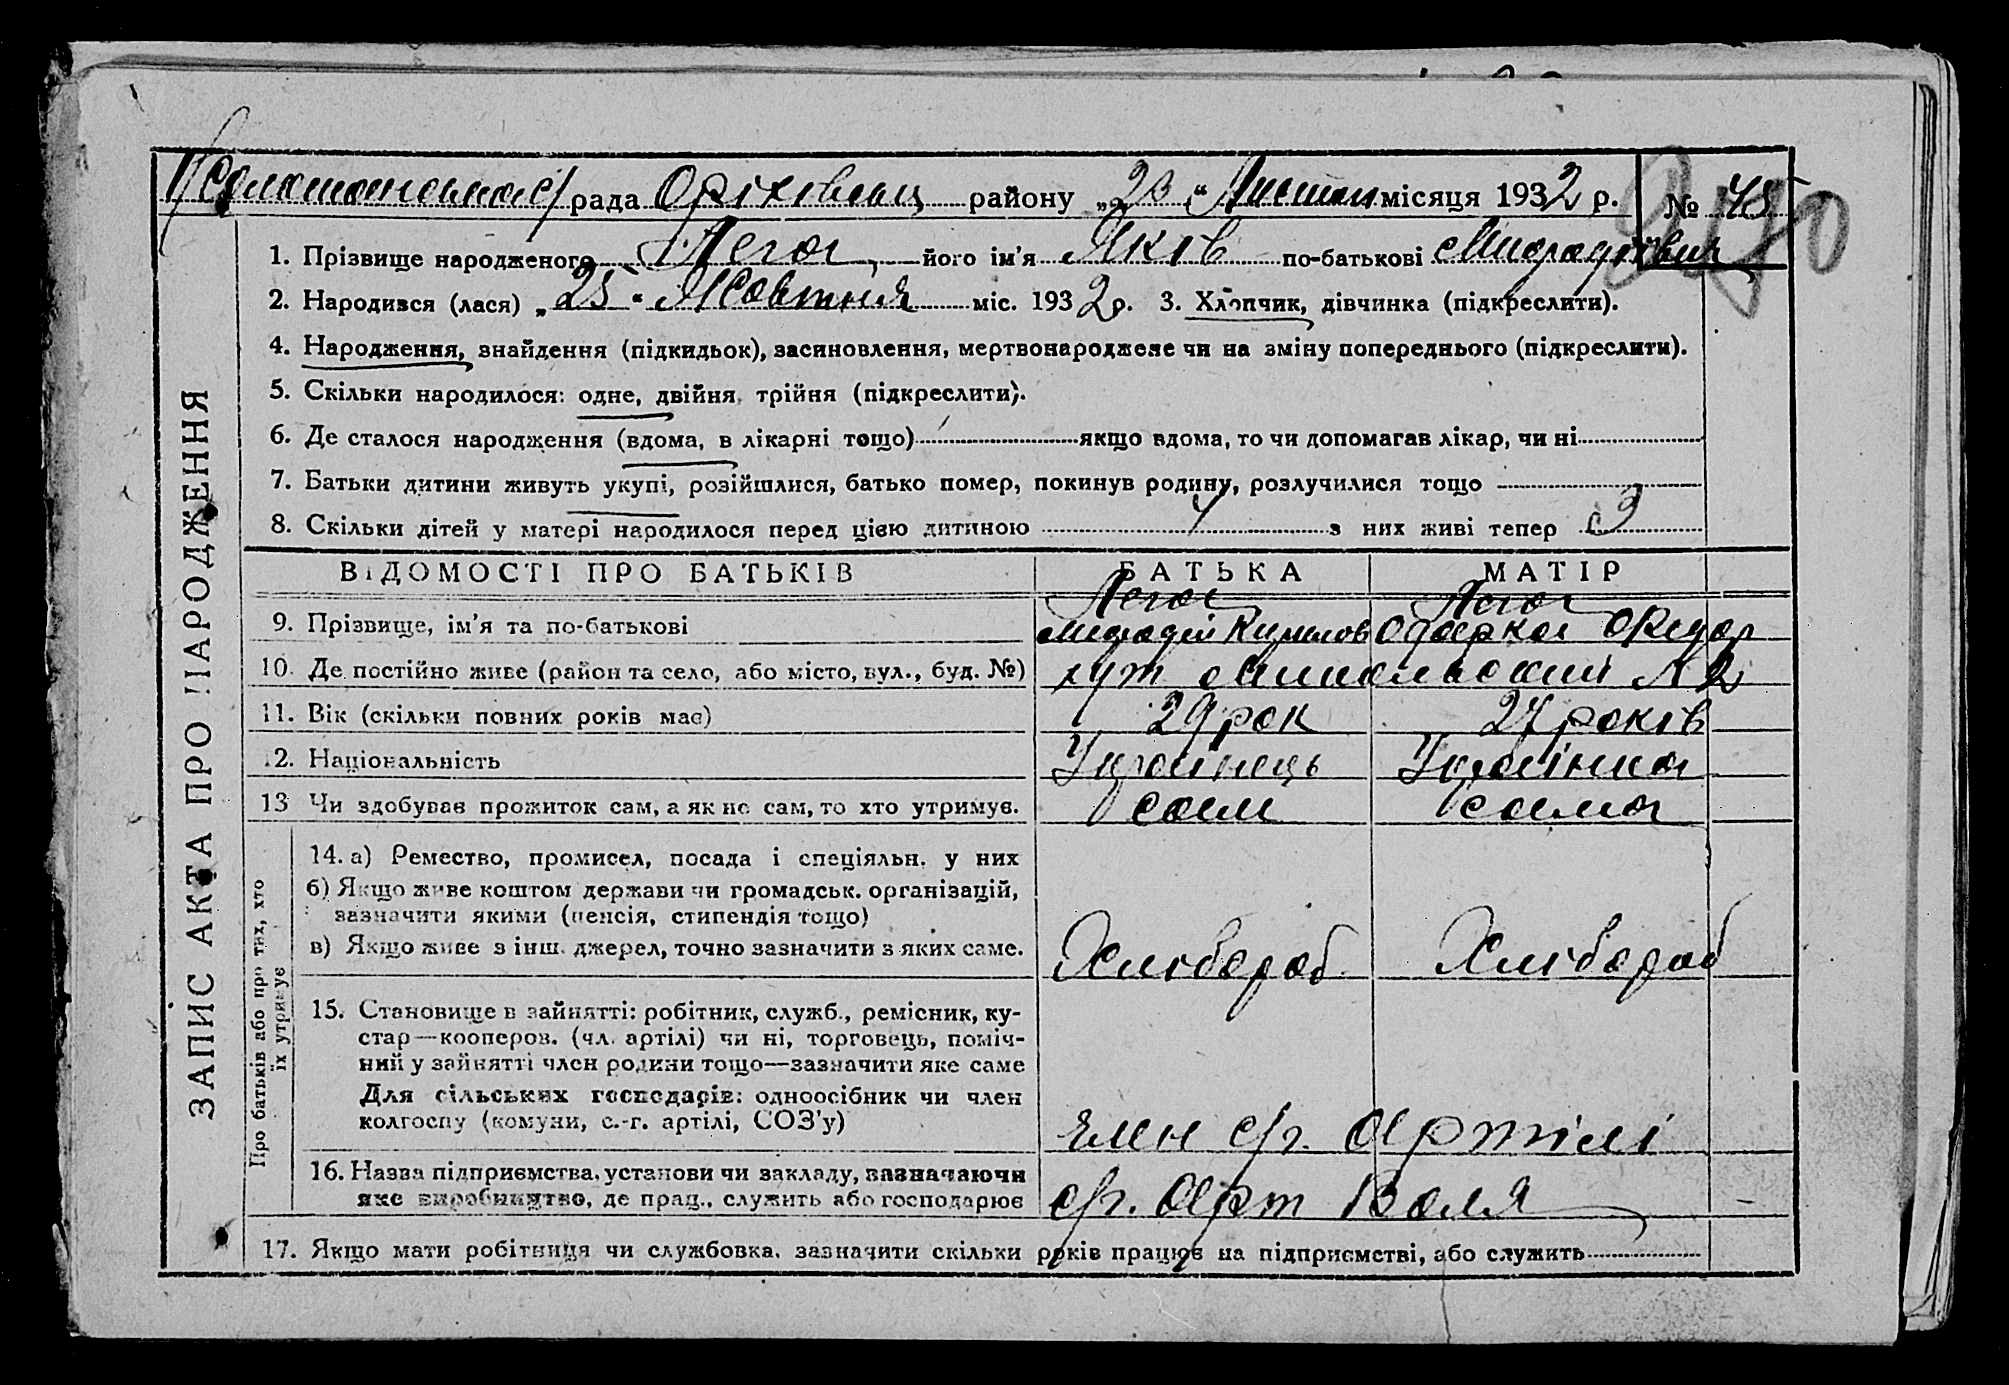 рада Оріхівськ району „23“ Листоп місяця 1932 р. № 45
ЗАПИС АКТА ПРО НАРОДЖЕННЯ
1. Прізвище народженого його ім'я Яків по-батькові
2. Народився (лася) „25“ Жовтня міс. 1932 р. 3. Хлопчик, дівчинка (підкреслити).
4. Народження, знайдення (підкидьок), засиновлення, мертвонароджене чи на зміну попереднього (підкреслити).
5. Скільки народилося: одне, двійня, трійня (підкреслити).
6. Де сталося народження (вдома, в лікарні тощо) якщо вдома, то чи допомагав лікар, чи ні
7. Батьки дитини живуть укупі, розійшлися, батько помер, покинув родину, розлучилися тощо
8. Скільки дітей у матері народилося перед цією дитиною з них живі тепер 3
ВІДОМОСТІ ПРО БАТЬКІВ БАТЬКА МАТІР
9. Прізвище, ім'я та по-батькові
10. Де постійно живе (район та село, або місто, вул., буд. №) хут № 2
11. Вік (скільки повних років має) 29 рок 27 років
12. Національність Українець Українка
13 Чи здобував прожиток сам, а як не сам, то хто утримує. сам сама
Про батьків або про тих, хто їх утримує
14. а) Ремество, промисел, посада і спеціяльн. у них
б) Якщо живе коштом держави чи громадськ. організацій,
зазначити якими (пенсія, стипендія тощо)
в) Якщо живе з інш. джерел, точно зазначити з яких саме. Хлібороб Хлібороб
15. Становище в зайнятті: робітник, служб., ремісник, ку-
стар—кооперов. (чл. артілі) чи ні, торговець, поміч-
ний у зайнятті член родини тощо—зазначити яке саме
Для сільських господарів: одноосібник чи член
колгоспу (комуни, с.-г. артілі, СОЗ'у) член с/г. Артілі
16. Назва підприємства, установи чи закладу, зазначаючи
яке виробництво, де прац., служить або господарює с/г. Арт Воля
17. Якщо мати робітниця чи службовка, зазначити скільки років працює на підприємстві, або служить